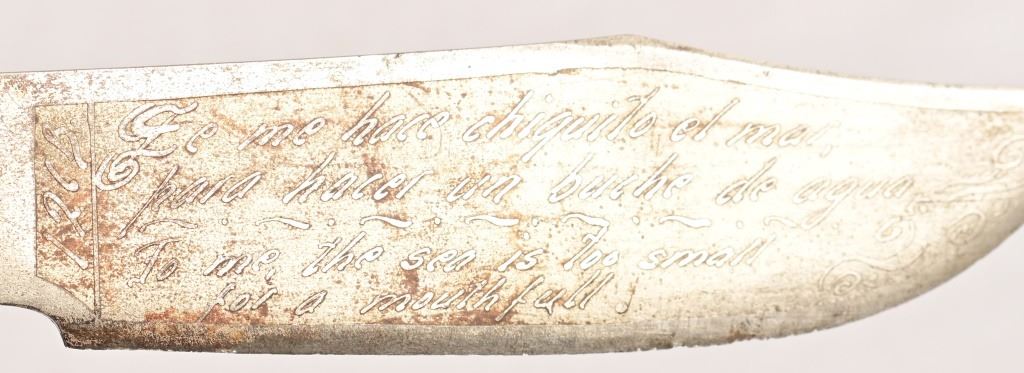 Se me hace chiquito el mar,
para hacer un buche de agua
To me, the sea is too small
for a mouthfull